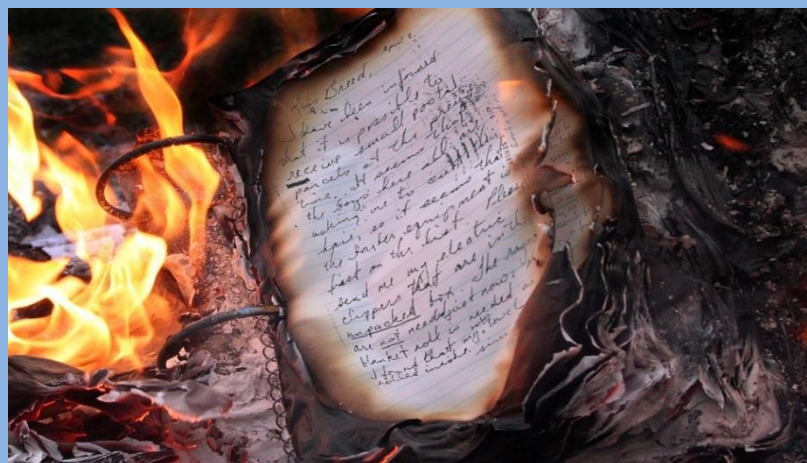 Miss Breed,
I have been informed
that it is possible to
receive small postal
parcels at the present
time. It seems that
the boys have all
asking me to cut their
hair, so it seems that
the barber equipment is
first on the list. Please
send me my electric
clippers that are in the
unpacked box. The
are not needed just now;
blanket roll is needed as
I found that my
inside, since